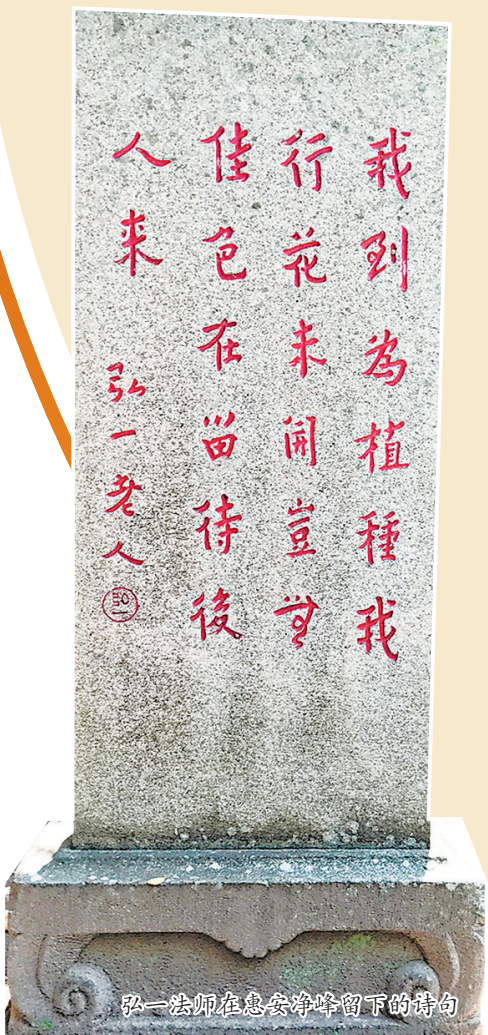 我到為植種我
行花未開豈無
佳色在留待後
人来 弘一老人
弘一
弘一法师在惠安净峰留下的诗句